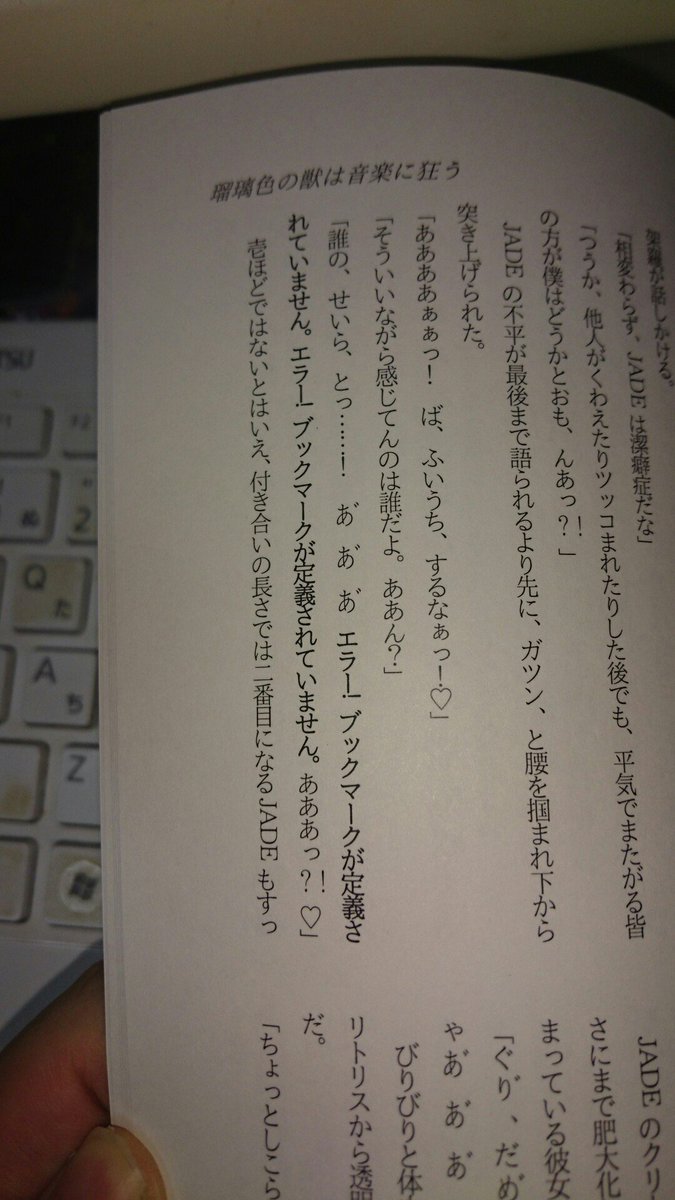 瑠璃色の獣は音楽に狂う
が話しかける。
「相変わらず、JADE は潔癖症だな」
「つうか、他人がくわえたりツッコまれたりした後でも、平気でまたがる皆
の方が僕はどうかとおも、んあっ?!」
JADE の不平が最後まで語られるより先に、ガツン、と腰を掴まれ下から
突き上げられた。
「ああああぁぁっ! ば、ふいうち、するなぁっ!♡」
「そういいながら感じてんのは誰だよ。ああん?」
「誰の、せいら、とっ……! あ゛ あ゛ あ゛ エラー! ブックマークが定義さ
れていません。エラー! ブックマークが定義されていません。あああっ?!♡」
壱ほどではないとはいえ、付き合いの長さでは二番目になる JADE もすっ
JADE のクリ
さにまで肥大化
まっている彼女
「ぐり゛、だめ
ゃあ゛ あ゛ あ゛
びりびりと体
リトリスから透明
だ。
「ちょっとしこら
TSU
F1
F2
ぬ
2
Q
た
A
ち
Z